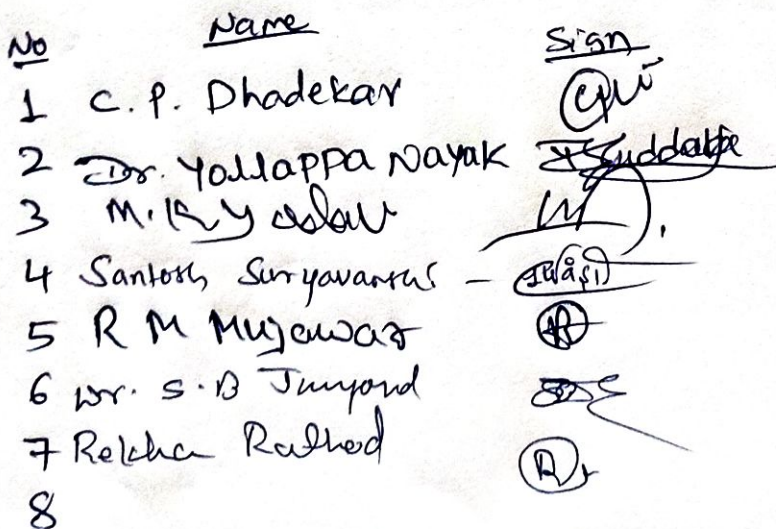 No Name Sign
1 C. P. Dhadekar
2 Dr. Yallappa Nayak
3 M. K. Yadav
4 Santosh Suryavanshi -
5 R M Mujawar
6 Dr. S. B
7 Rekha Rathod
8